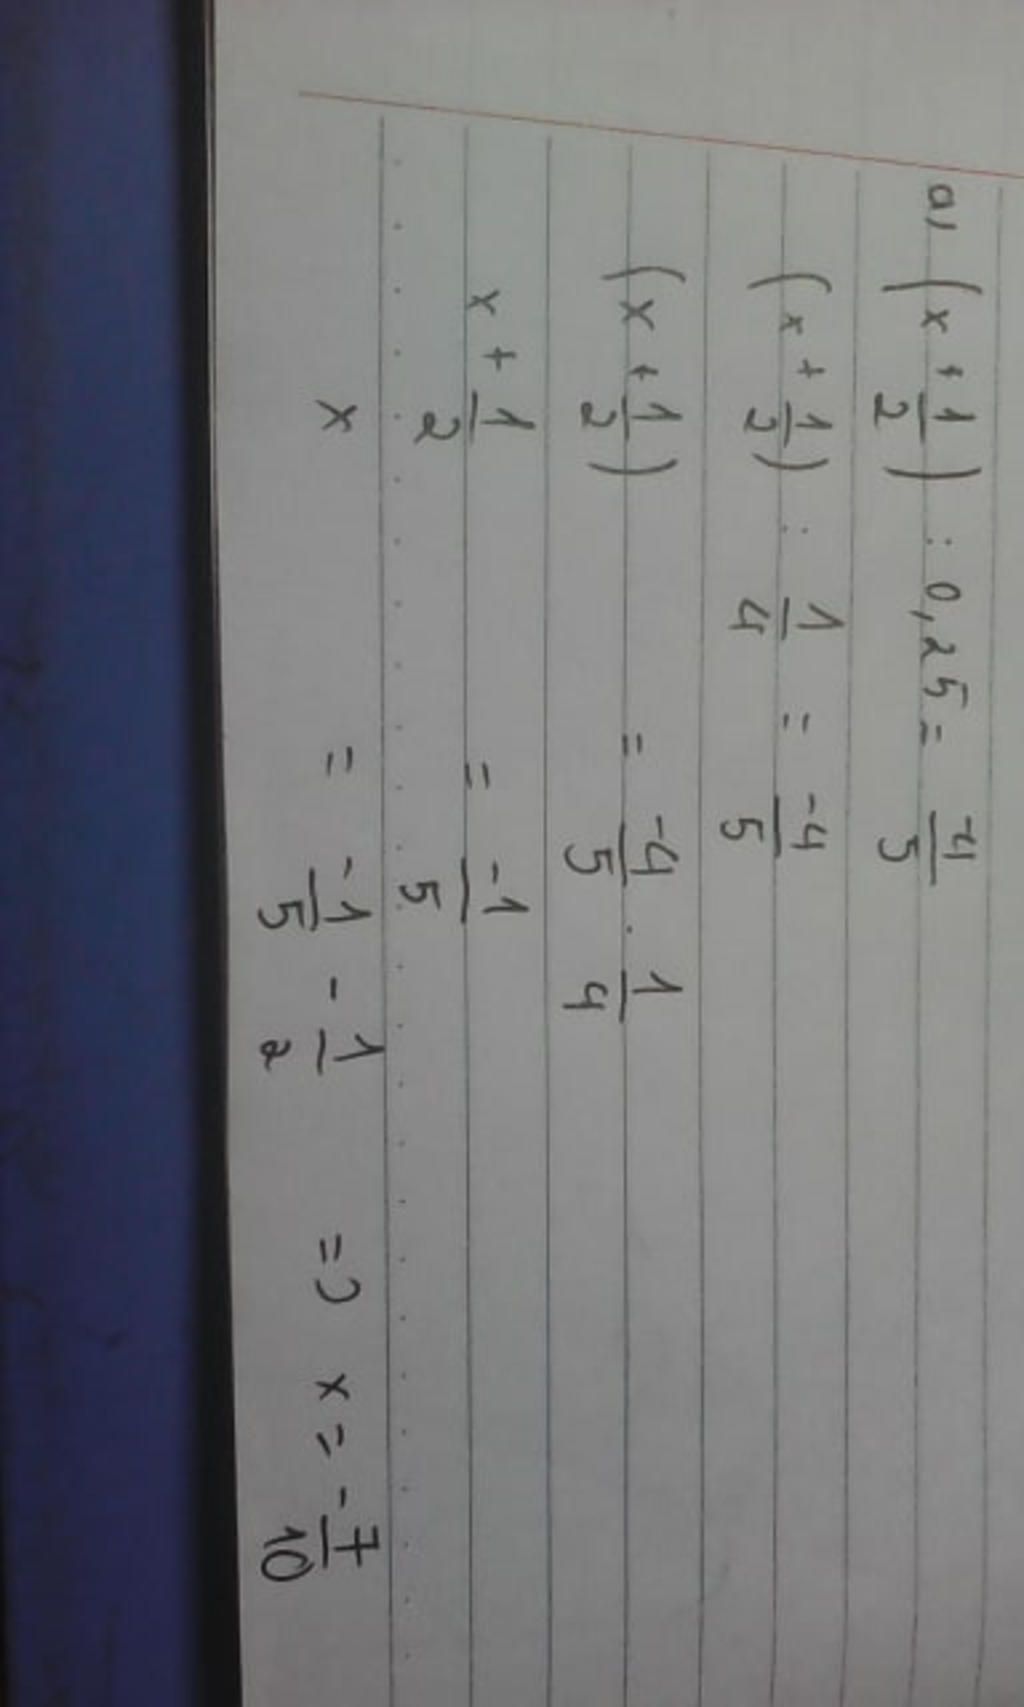 a, (x + 1/2) : 0,25 = -4/5
(x + 1/2) : 1/4 = -4/5
(x + 1/2) = -4/5 . 1/4
x + 1/2 = -1/5
x = -1/5 - 1/2 => x = -7/10